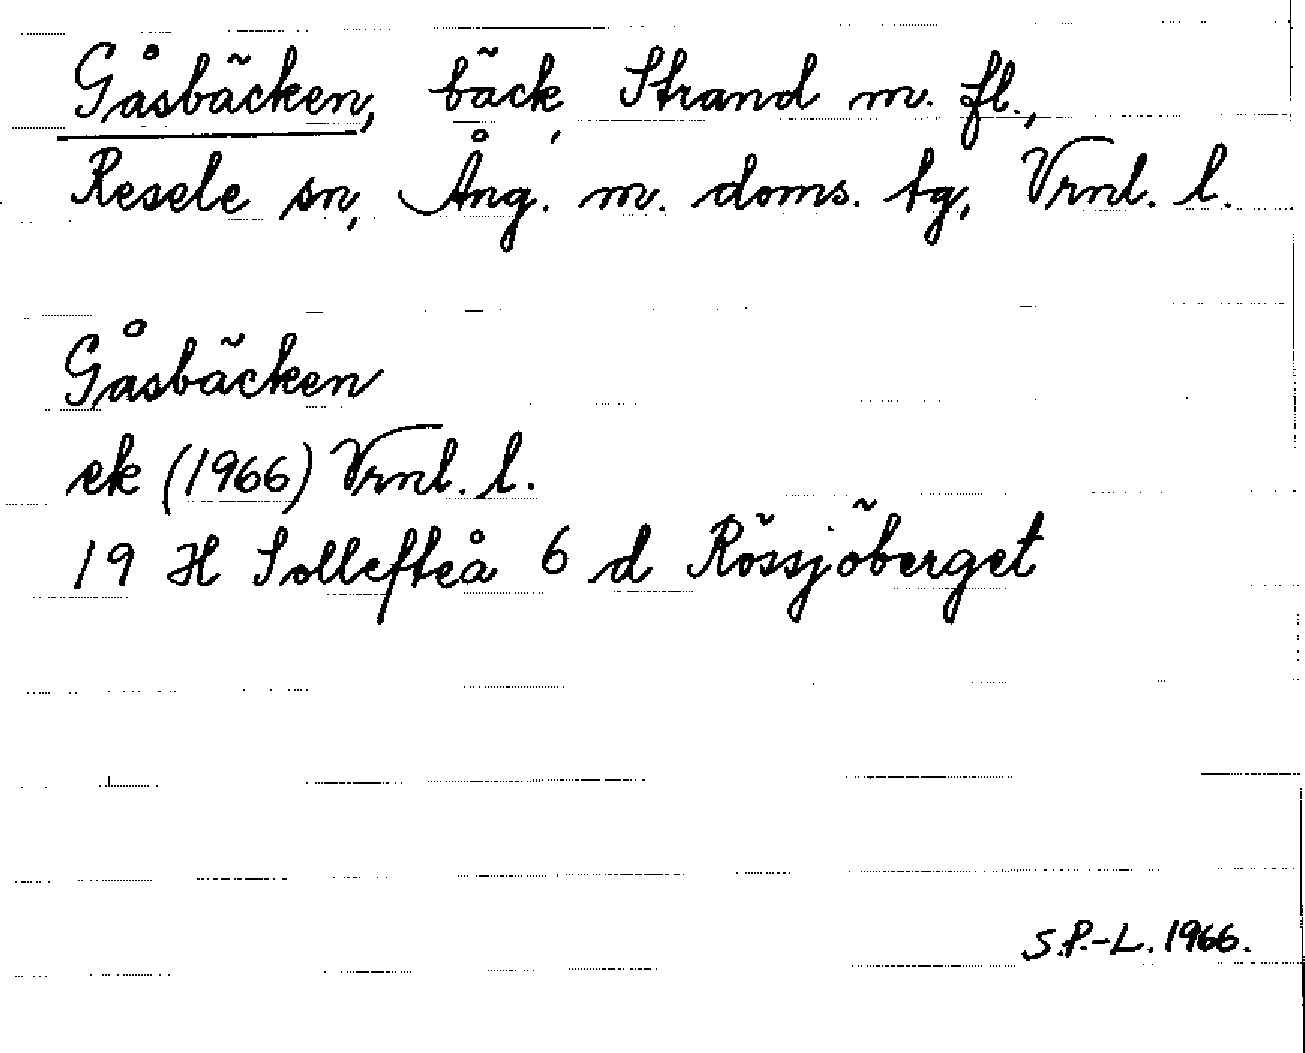 Gåsbäcken, bäck, Strand m. fl.,
Resele sn, Ång. m. doms. tg, Vrnl. l.
Gåsbäcken
ek (1966) Vrnl. l.
19 H Sollefteå 6 d Rössjöberget
S.P.-L. 1966.